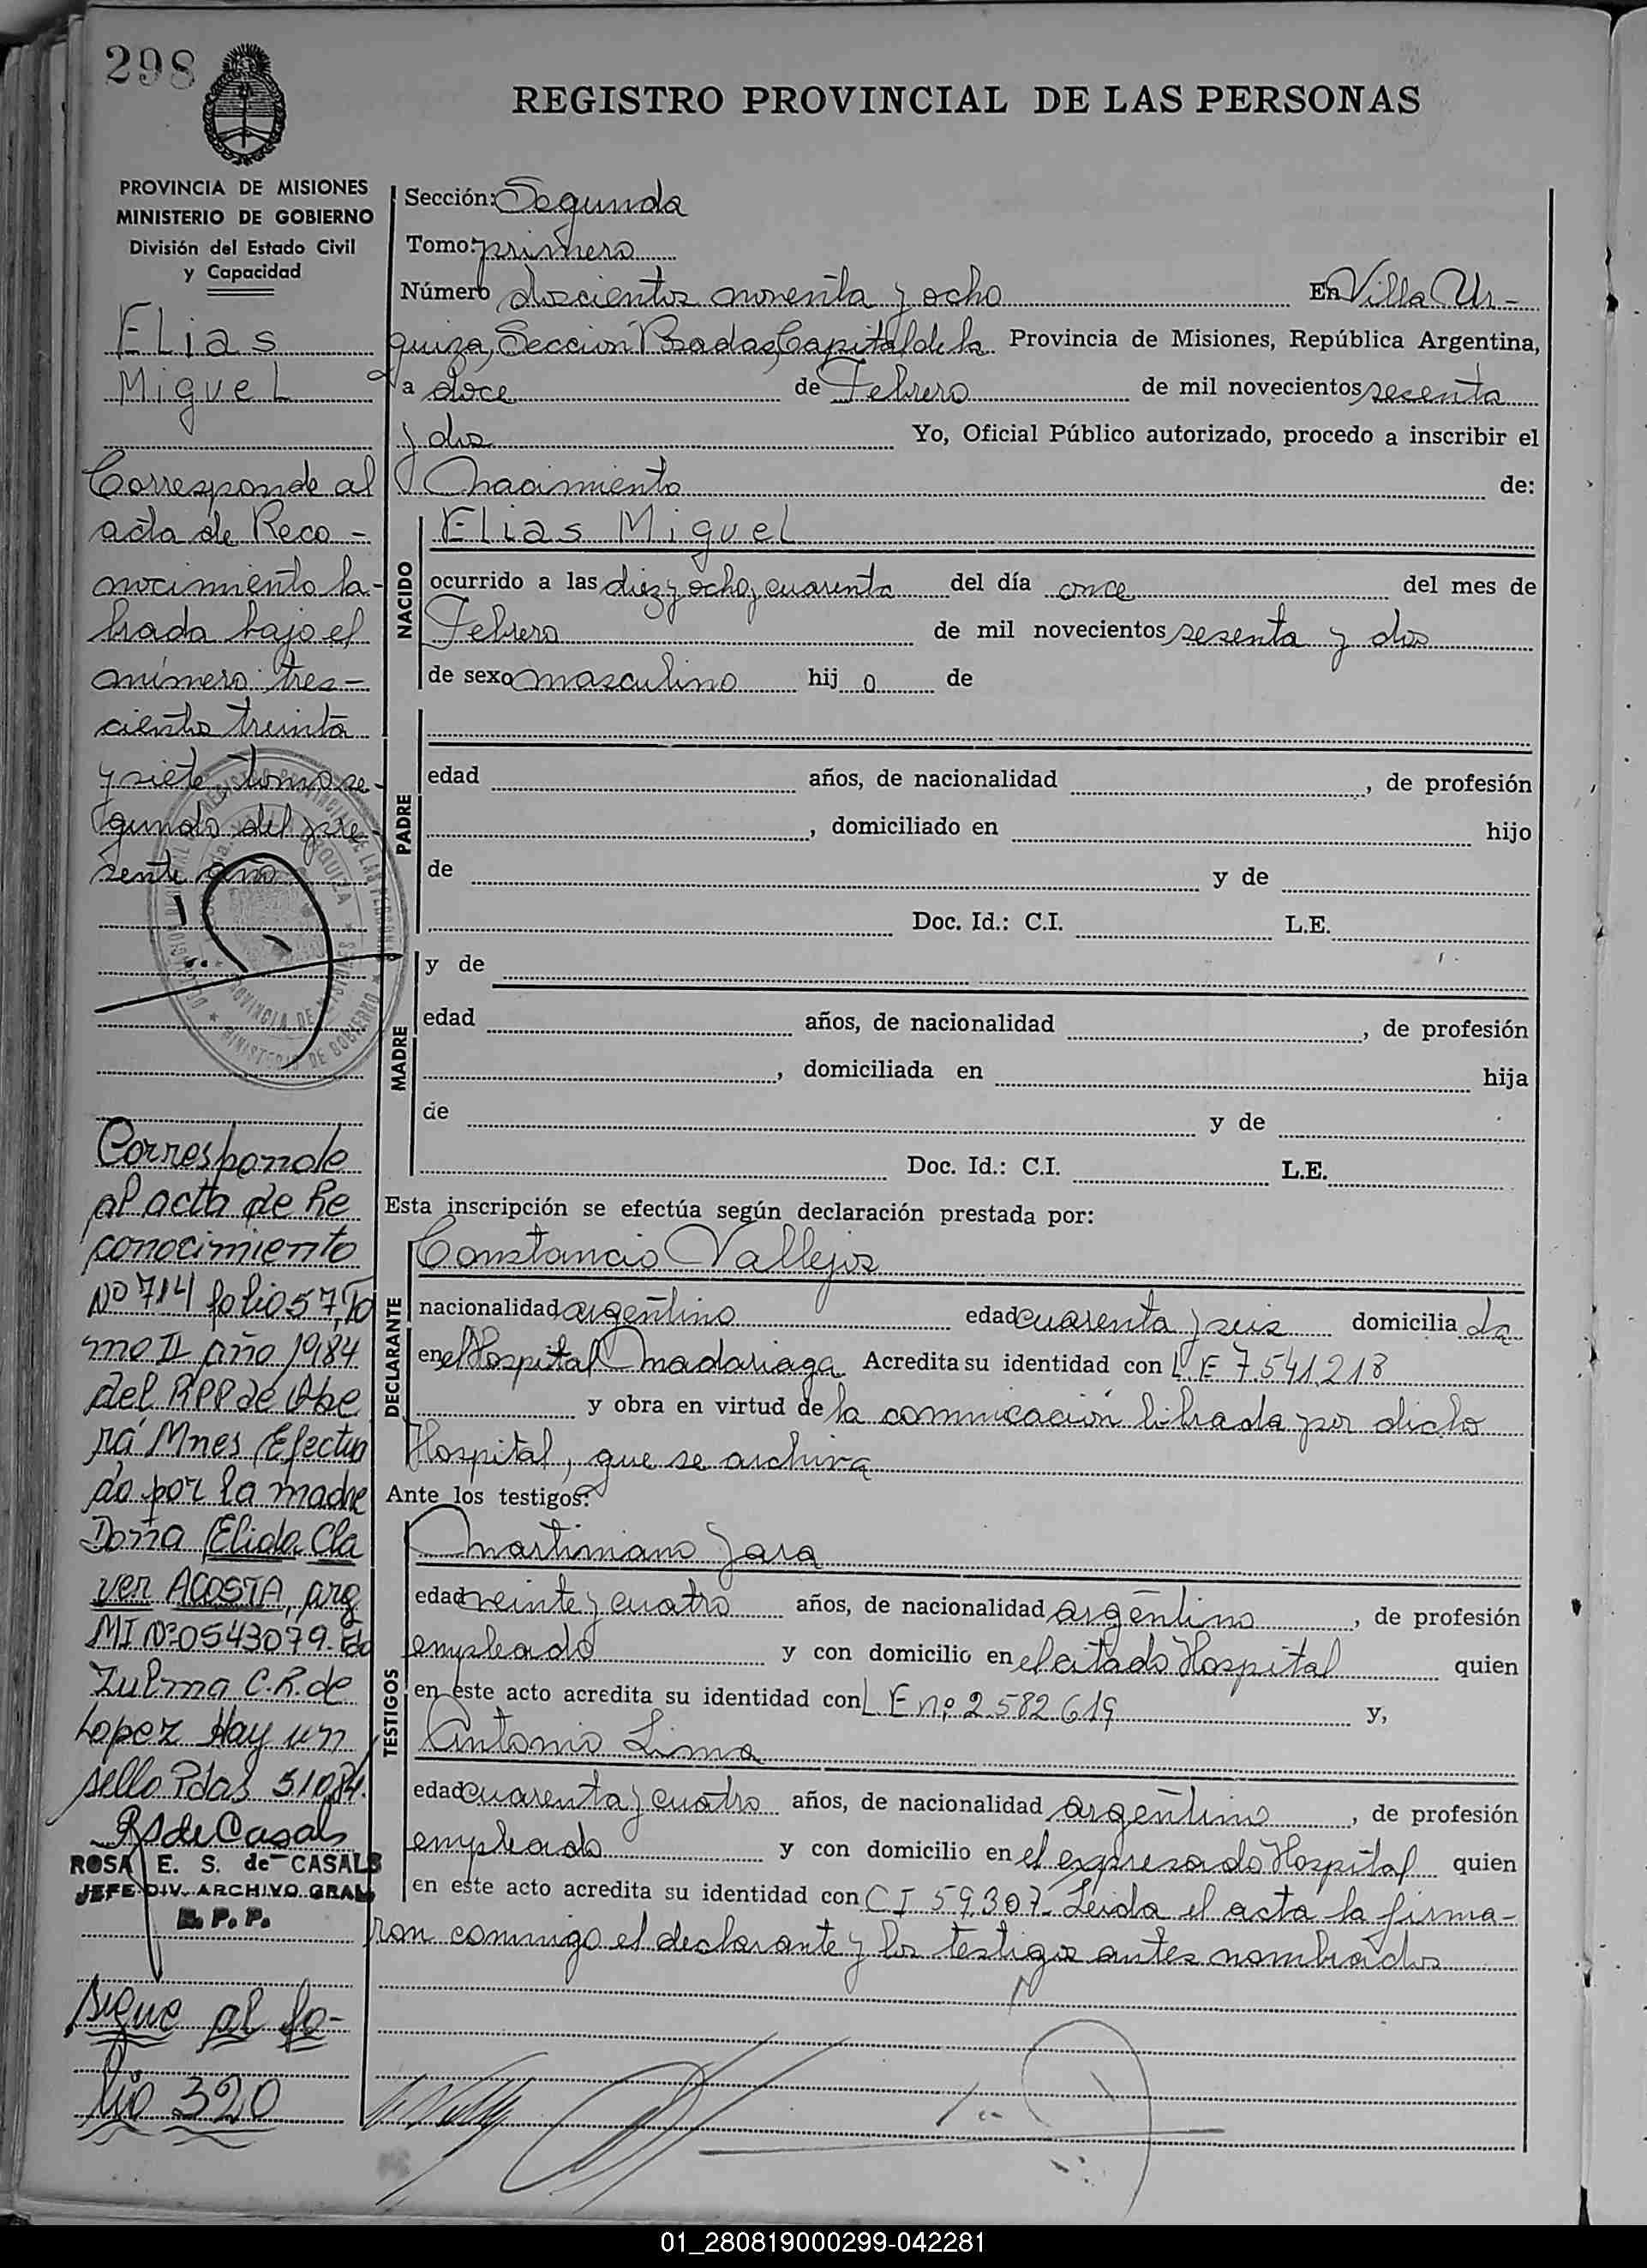 298
REGISTRO PROVINCIAL DE LAS PERSONAS
PROVINCIA DE MISIONES
MINISTERIO DE GOBIERNO
División del Estado Civil
y Capacidad
Elias
Miguel
Corresponde al
acta de Reco-
nocimiento la-
brada bajo el
número tres-
ciento treinta
y siete, tomo se-
gundo del pre-
sente año
Corresponde
al acta de Re
conocimiento
Nº 714 folio 57, To
mo II año 1984
del RPP de Obe
rá Mnes Efectua
do por la madre
Doña Elida Cla
ver ACOSTA, arg
MI Nº 0543079. Fdo
Zulma C.R. de
Lopez Hay un
sello Pdas
ROSA E. S. de CASALS
JEFE DIV. ARCHIVO GRAL
R. P. P.
sigue al fo-
lio 320
Sección: Segunda
Tomo: primero
Número doscientos noventa y ocho En Villa Ur-
quiza, Sección Posadas, Capital de la Provincia de Misiones, República Argentina,
a doce de Febrero de mil novecientos sesenta
y dos Yo, Oficial Público autorizado, procedo a inscribir el
Nacimiento de:
NACIDO
Elias Miguel
ocurrido a las diez y ocho y cuarenta del día once del mes de
Febrero de mil novecientos sesenta y dos
de sexo masculino hijo de
PADRE
edad años, de nacionalidad , de profesión
, domiciliado en hijo
de y de
Doc. Id.: C.I. L.E.
MADRE
y de
edad años, de nacionalidad , de profesión
, domiciliada en hija
de y de
Doc. Id.: C.I. L.E.
Esta inscripción se efectúa según declaración prestada por:
DECLARANTE
Constancio Vallejos
nacionalidad argentino edad cuarenta y seis domicilia do
en el Hospital Madariaga Acredita su identidad con L.E 7.541.218
y obra en virtud de la comunicación librada por dicho
Hospital, que se archiva
Ante los testigos:
TESTIGOS
Martimiano Jara
edad veinte y cuatro años, de nacionalidad argentino, de profesión
empleado y con domicilio en el citado Hospital quien
en este acto acredita su identidad con L.E nº 2.582.619 y,
Antonio Lima
edad cuarenta y cuatro años, de nacionalidad argentino, de profesión
empleado y con domicilio en el expresado Hospital quien
en este acto acredita su identidad con C I 59.307. Leida el acta la firma-
ron conmigo el declarante y los testigos antes nombrados
01_280819000299-042281